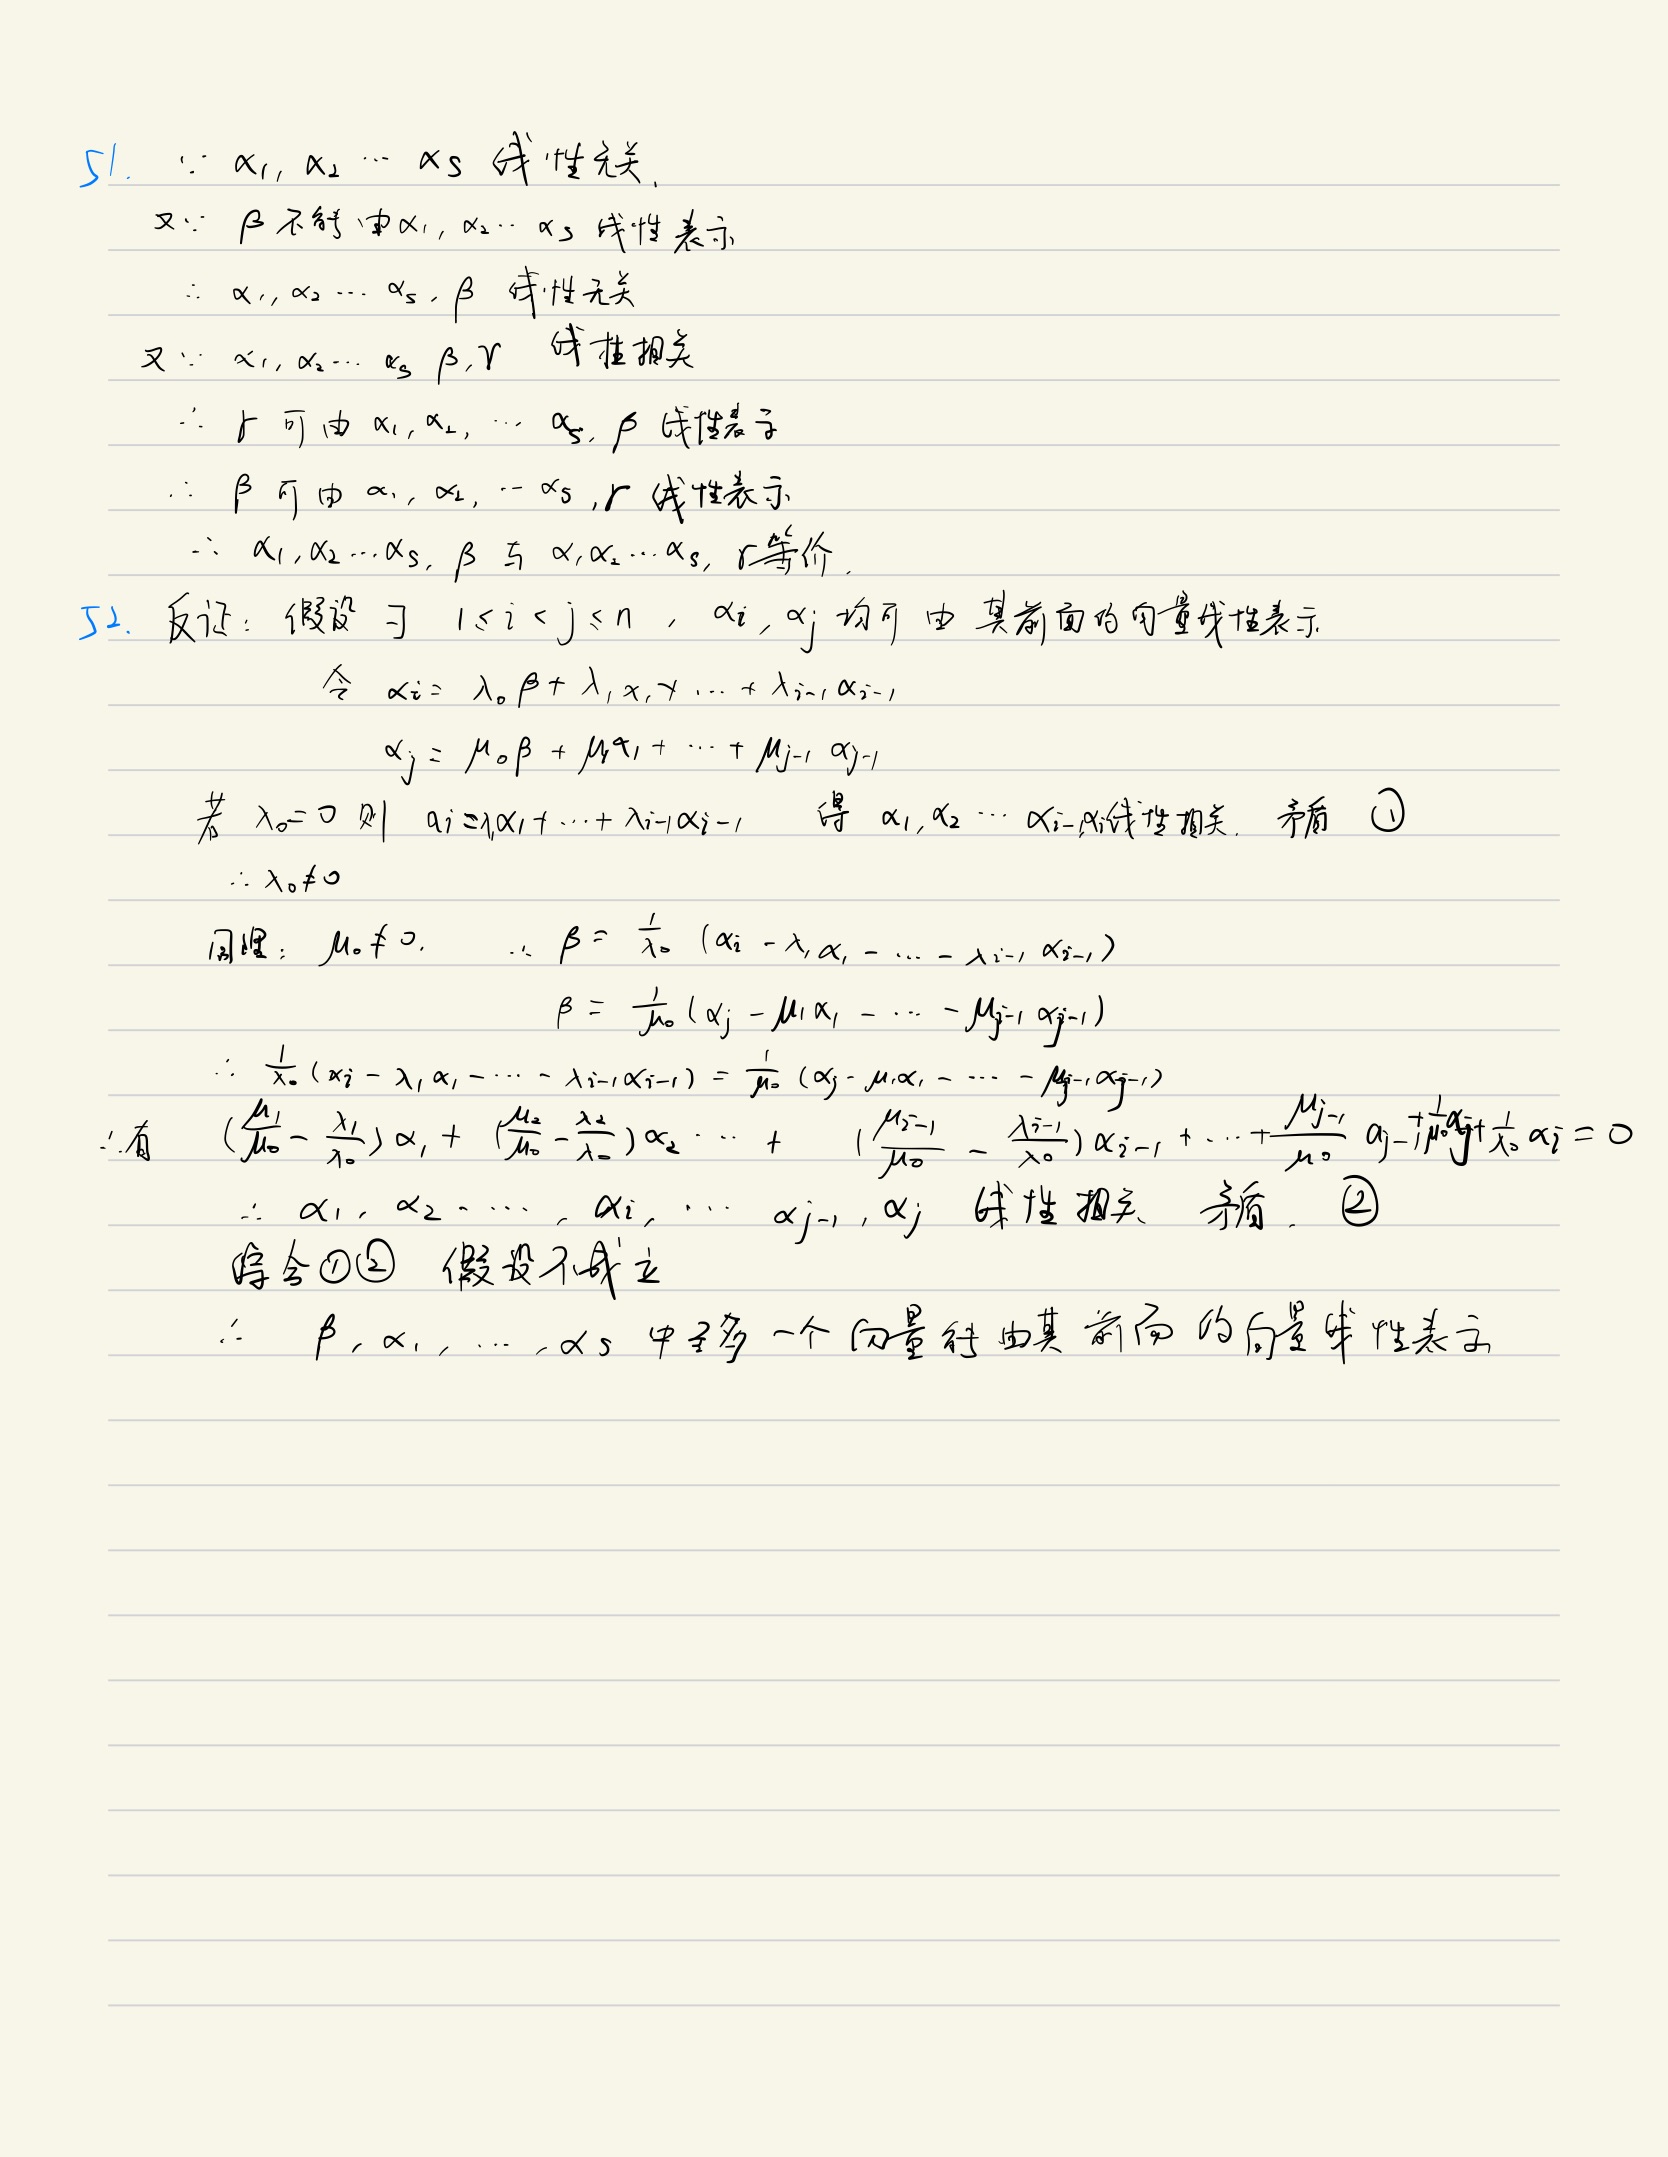 51. ∵ α₁, α₂ … αs 线性无关.
又∵ β 不能由 α₁, α₂ … αs 线性表示
∴ α₁, α₂ … αs, β 线性无关
又∵ α₁, α₂ … αs β, γ 线性相关
∴ γ 可由 α₁, α₂, … αs, β 线性表示
∴ β 可由 α₁, α₂, … αs, γ 线性表示
∴ α₁, α₂ … αs, β 与 α₁ α₂ … αs, γ 等价.
52. 反证: 假设 ∃ 1 ≤ i < j ≤ n , αi, αj 均可由其前面的向量线性表示
令 αi = λ₀β + λ₁α₁ + … + λi-1 αi-1
αj = μ₀β + μ₁α₁ + … + μj-1 αj-1
若 λ₀ = 0 则 αi = λ₁α₁ + … + λi-1 αi-1 得 α₁, α₂ … αi-1, αi 线性相关. 矛盾 ①
∴ λ₀ ≠ 0
同理: μ₀ ≠ 0. ∴ β = 1/λ₀ (αi - λ₁α₁ - … - λi-1 αi-1)
β = 1/μ₀ (αj - μ₁α₁ - … - μj-1 αj-1)
∴ 1/λ₀ (αi - λ₁α₁ - … - λi-1 αi-1) = 1/μ₀ (αj - μ₁α₁ - … - μj-1 αj-1)
∴有 (μ₁/μ₀ - λ₁/λ₀) α₁ + (μ₂/μ₀ - λ₂/λ₀) α₂ … + (μi-1/μ₀ - λi-1/λ₀) αi-1 + … + μj-1/μ₀ αj-1 + 1/μ₀ αj + 1/λ₀ αi = 0
∴ α₁, α₂ …, αi, … αj-1, αj 线性相关 矛盾. ②
综合①② 假设不成立
∴ β, α₁, …, αs 中至多一个向量能由其前面的向量线性表示